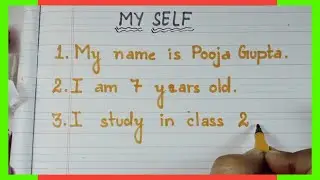 MY SELF
1. My name is Pooja Gupta.
2. I am 7 years old.
3. I study in class 2